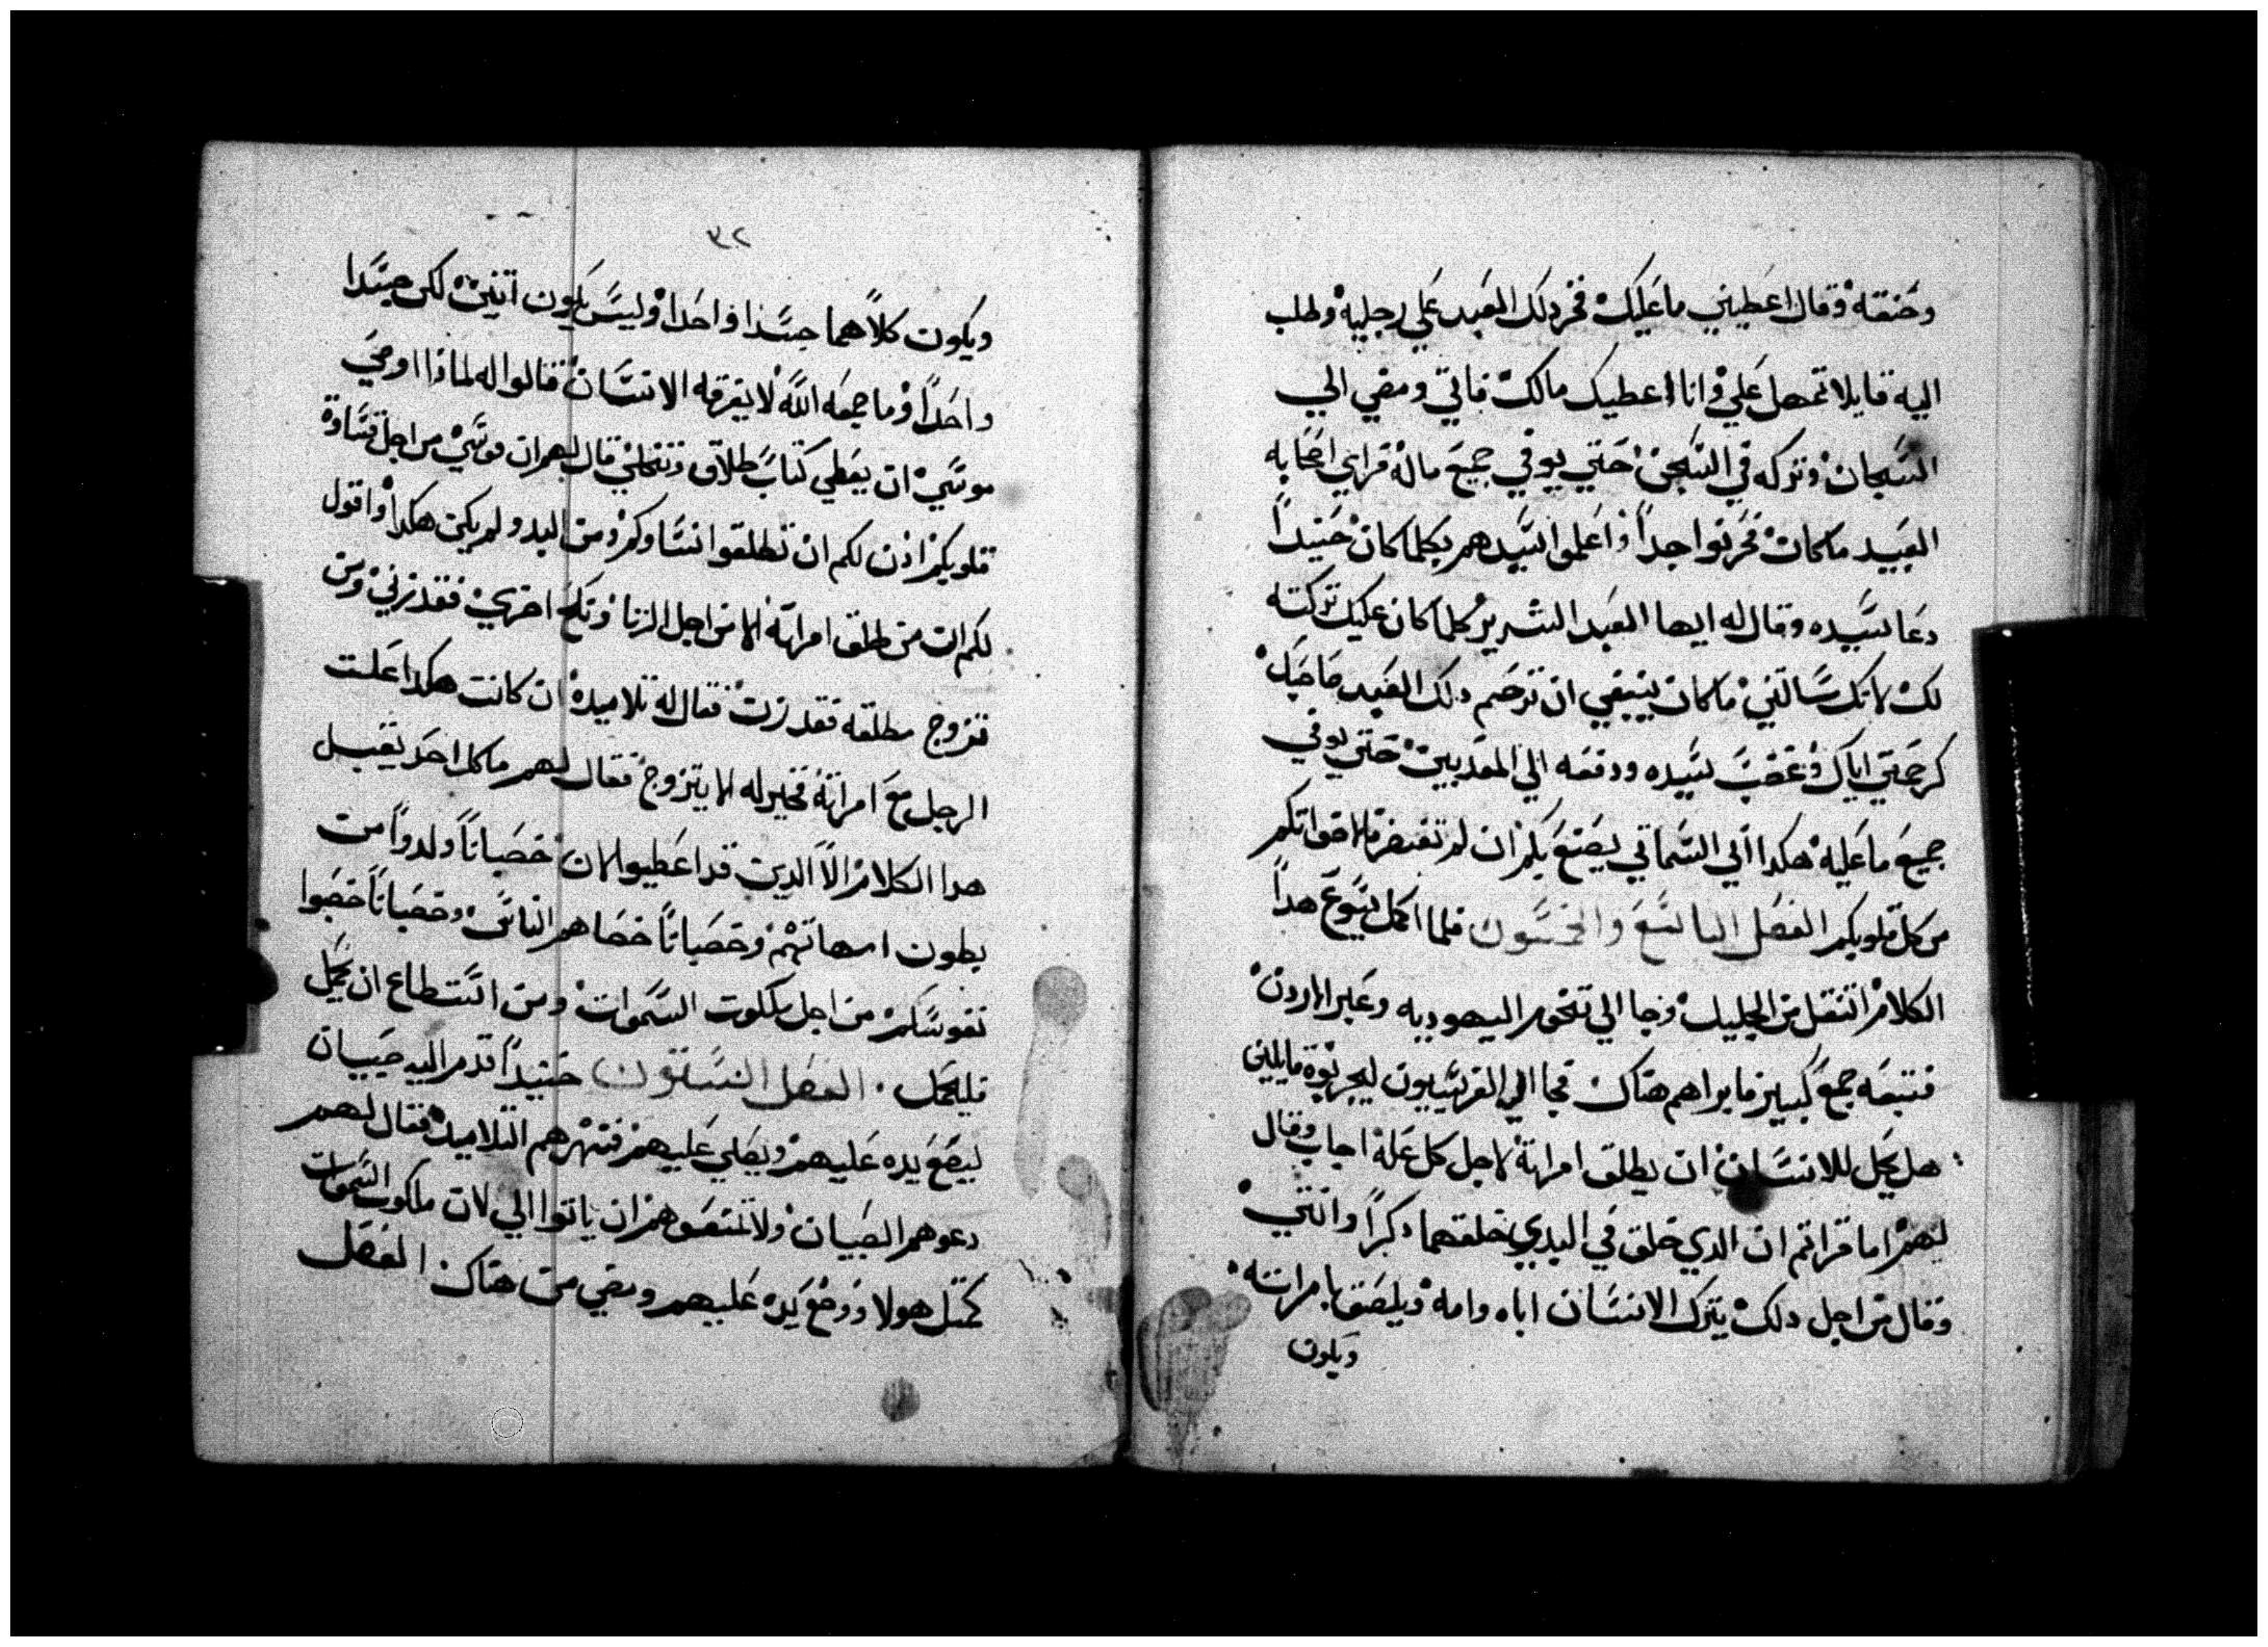 وخنقه وقال اعطيني ما عليك فخر دلك العبد علي رجليه وطلب
اليه قايلا تمهل علي وانا اعطيك مالك فاتي ومضي الي
السجان وتركه في السجن احتي يوفي جميع ماله فراي اصحابه
العبيد ما كان فحزنوا جداً واعلموا سيدهم بكلما كان حنيداً
دعا سيده وقال له ايها العبد الشرير كلما كان عليك تركته
لك لانك سالتني ما كان ينبغي ان ترحم دلك العبد صاحبك
كرحمتي اياك وغضب سيده ودفعه الي المعدبين حتي يوفي
جميع ما عليه هكدا ابي السماتي يصنع بكم ان لم تغفرو لاخواتكم
من كل قلوبكم الفصل التاسع والخمسون فلما اكمل يسوع هداً
الكلام انتقل من الجليل وجا الي تخوم اليهوديه وعبر الاردن
فتبعه جمع كبير فابراهم هناك فجا اليه الفريسيون ليجربوه قايلين
هل يحل للانسان ان يطلق امراته لاجل كل عله اجاب وقال
لهم اما قراتم ان الدي خلق في البدي خلقهما دكراً وانتي
وقال من اجل دلك يترك الانسان اباه وامه ويلصق بامراته
ويكون
٣٢
ويكون كلاهما جسدا واحدا وليس يكون اتنين لكن جسدا
واحداً وما جمعه الله لا يفرقه الانسان فقالوا له لماذا اوصي
موسي ان يعطي كتاب طلاق وتخلي قال لهم ان موسي من اجل قساوة
قلوبكم اذن لكم ان تطلقوا نساوكم ومن البدو لم يكن هكدا واقول
لكم ان من طلق امراته الا من اجل الزنا وتكح اخري فقد زني ومن
تزوج مطلقه فقد زنا فقال له تلاميده ان كانت هكدا علت
الرجل مع امراته فخير له الا يتزوج فقال لهم ما كل احد يقبل
هدا الكلام الا الدين قد اعطيوا لان خصياناً ولدوا من
بطون امهاتهم وخصياناً خصاهم الناس وخصياناً خصوا
نفوسهم من اجل ملكوت السموات ومن استطاع ان يحمل
فليحمل الفصل الستون حنيداً قدم اليه صبيان
ليضع يده عليهم ويصلي عليهم فنهرهم التلاميد فقال لهم
دعوهم الصبيان ولا تمنعوهم ان ياتوا الي لان ملكوت السموات
كمتل هولا ووضع يده عليهم ومضي من هناك الفصل